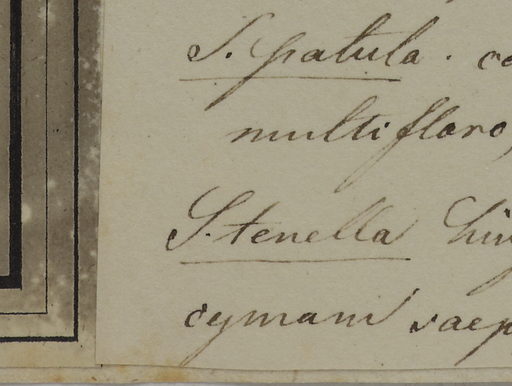 S. patula. co
multifloro,
S. tenella
cymam saep